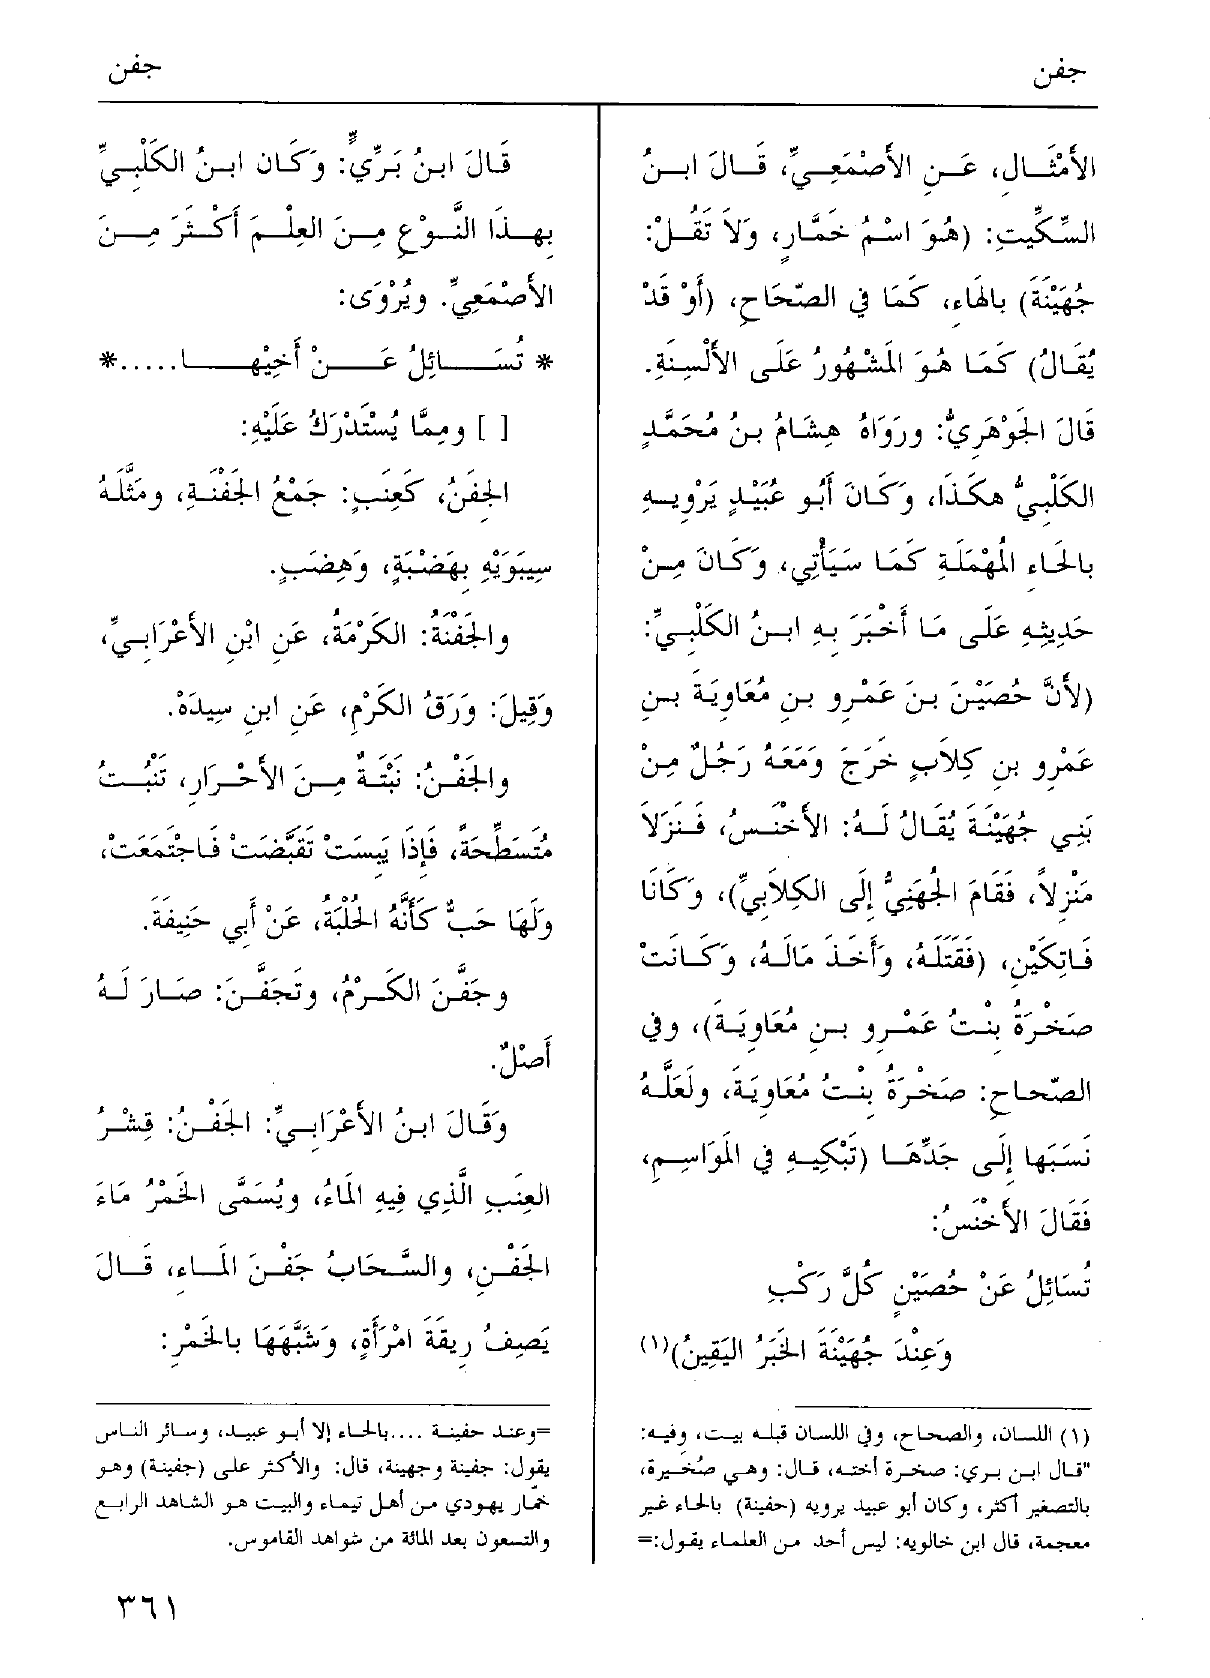 جفن
جفن
الأَمْثَالِ، عَنِ الأَصْمَعِيِّ، قَالَ ابنُ
السِّكِّيتِ: (هُوَ اسْمُ خَمَّارٍ، وَلاَ تَقُلْ:
جُهَيْنَة) بالهَاءِ، كَمَا في الصّحَاحِ، (أَوْ قَدْ
يُقَالُ) كَمَا هُوَ المَشْهُورُ عَلَى الأَلْسِنَةِ.
قَالَ الجَوْهَرِيُّ: ورَوَاهُ هِشَامُ بنُ مُحَمَّدٍ
الكَلْبِيُّ هكَذَا، وَكَانَ أَبُو عُبَيْدٍ يَرْوِيهِ
بالحَاءِ المُهْمَلَةِ كَمَا سَيَأتِي، وَكَانَ مِنْ
حَدِيثِهِ عَلَى مَا أَخْبَرَ بِهِ ابنُ الكَلْبِيِّ:
(لأَنَّ حُصَيْنَ بنَ عَمْرِو بنِ مُعَاوِيَةَ بنِ
عَمْرِو بنِ كِلاَبٍ خَرَجَ وَمَعَهُ رَجُلٌ مِنْ
بَنِي جُهَيْنَةَ يُقَالُ لَهُ: الأَخْنَسُ، فَنَزَلاَ
مَنْزِلاً، فَقَامَ الجُهَنِيُّ إِلَى الكِلاَبِيِّ)، وَكَانَا
فَاتِكَيْنِ، (فَقَتَلَهُ، وَأَخَذَ مَالَهُ، وَكَانَتْ
صَخْرَةُ بِنْتُ عَمْرِو بنِ مُعَاوِيَةَ)، وفي
الصّحَاحِ: صَخْرَةُ بِنْتُ مُعَاوِيَةَ، ولَعَلَّهُ
نَسَبَهَا إِلَى جَدِّهَا (تَبْكِيهِ في المَوَاسِمِ،
فَقَالَ الأَخْنَسُ:
تُسَائِلُ عَنْ حُصَيْنٍ كُلَّ رَكْبٍ
وَعِنْدَ جُهَيْنَةَ الخَبَرُ اليَقِينُ)(١)
(١) اللسان، والصحاح، وفي اللسان قبله بيت، وفيه:
"قال ابن بري: صخرة أخته، قال: وهي صُخَيرة،
بالتصغير أكثر، وكان أبو عبيد يرويه (حفينة) بالحاء غير
معجمة، قال ابن خالويه: ليس أحد من العلماء يقول:=
قَالَ ابنُ بَرِّيٍّ: وَكَان ابنُ الكَلْبِيِّ
بِهذَا النَّوْعِ مِنَ العِلْمِ أَكْثَرَ مِنَ
الأَصْمَعِيِّ. ويُرْوَى:
* تُسَائِلُ عَنْ أَخِيْهَا.....*
[ ] ومِمَّا يُسْتَدْرَكُ عَلَيْهِ:
الجِفَنُ، كَعِنَبٍ: جَمْعُ الجَفْنَةِ، ومَثَّلَهُ
سِيبَوَيْهِ بِهَضْبَةٍ، وَهِضَبٍ.
والجَفْنَةُ: الكَرْمَةُ، عَنِ ابْنِ الأَعْرَابِيِّ،
وَقِيلَ: وَرَقُ الكَرْمِ، عَنِ ابنِ سِيدَهْ.
والجَفْنُ: نَبْتَةٌ مِنَ الأَحْرَارِ، تَنْبُتُ
مُتَسَطِّحَةً، فَإِذَا يَبِسَتْ تَقَبَّضَتْ فَاجْتَمَعَتْ،
ولَهَا حَبٌّ كَأَنَّهُ الحُلْبَةُ، عَنْ أَبِي حَنِيفَةَ.
وجَفَّنَ الكَرْمُ، وتَجَفَّنَ: صَارَ لَهُ
أَصْلٌ.
وَقَالَ ابنُ الأَعْرَابِيِّ: الجَفْنُ: قِشْرُ
العِنَبِ الَّذِي فِيهِ المَاءُ، ويُسَمَّى الخَمْرُ مَاءَ
الجَفْنِ، والسَّحَابُ جَفْنَ المَاءِ، قَالَ
يَصِفُ رِيقَةَ امْرَأَةٍ، وَشَبَّهَهَا بالخَمْرِ:
=وعند حفينة ....بالحاء إلا أبو عبيد، وسائر الناس
يقول: جفينة وجهينة، قال: والأكثر على (جفينة) وهو
خمّار يهودي من أهل تيماء والبيت هو الشاهد الرابع
والتسعون بعد المائة من شواهد القاموس.
٣٦١